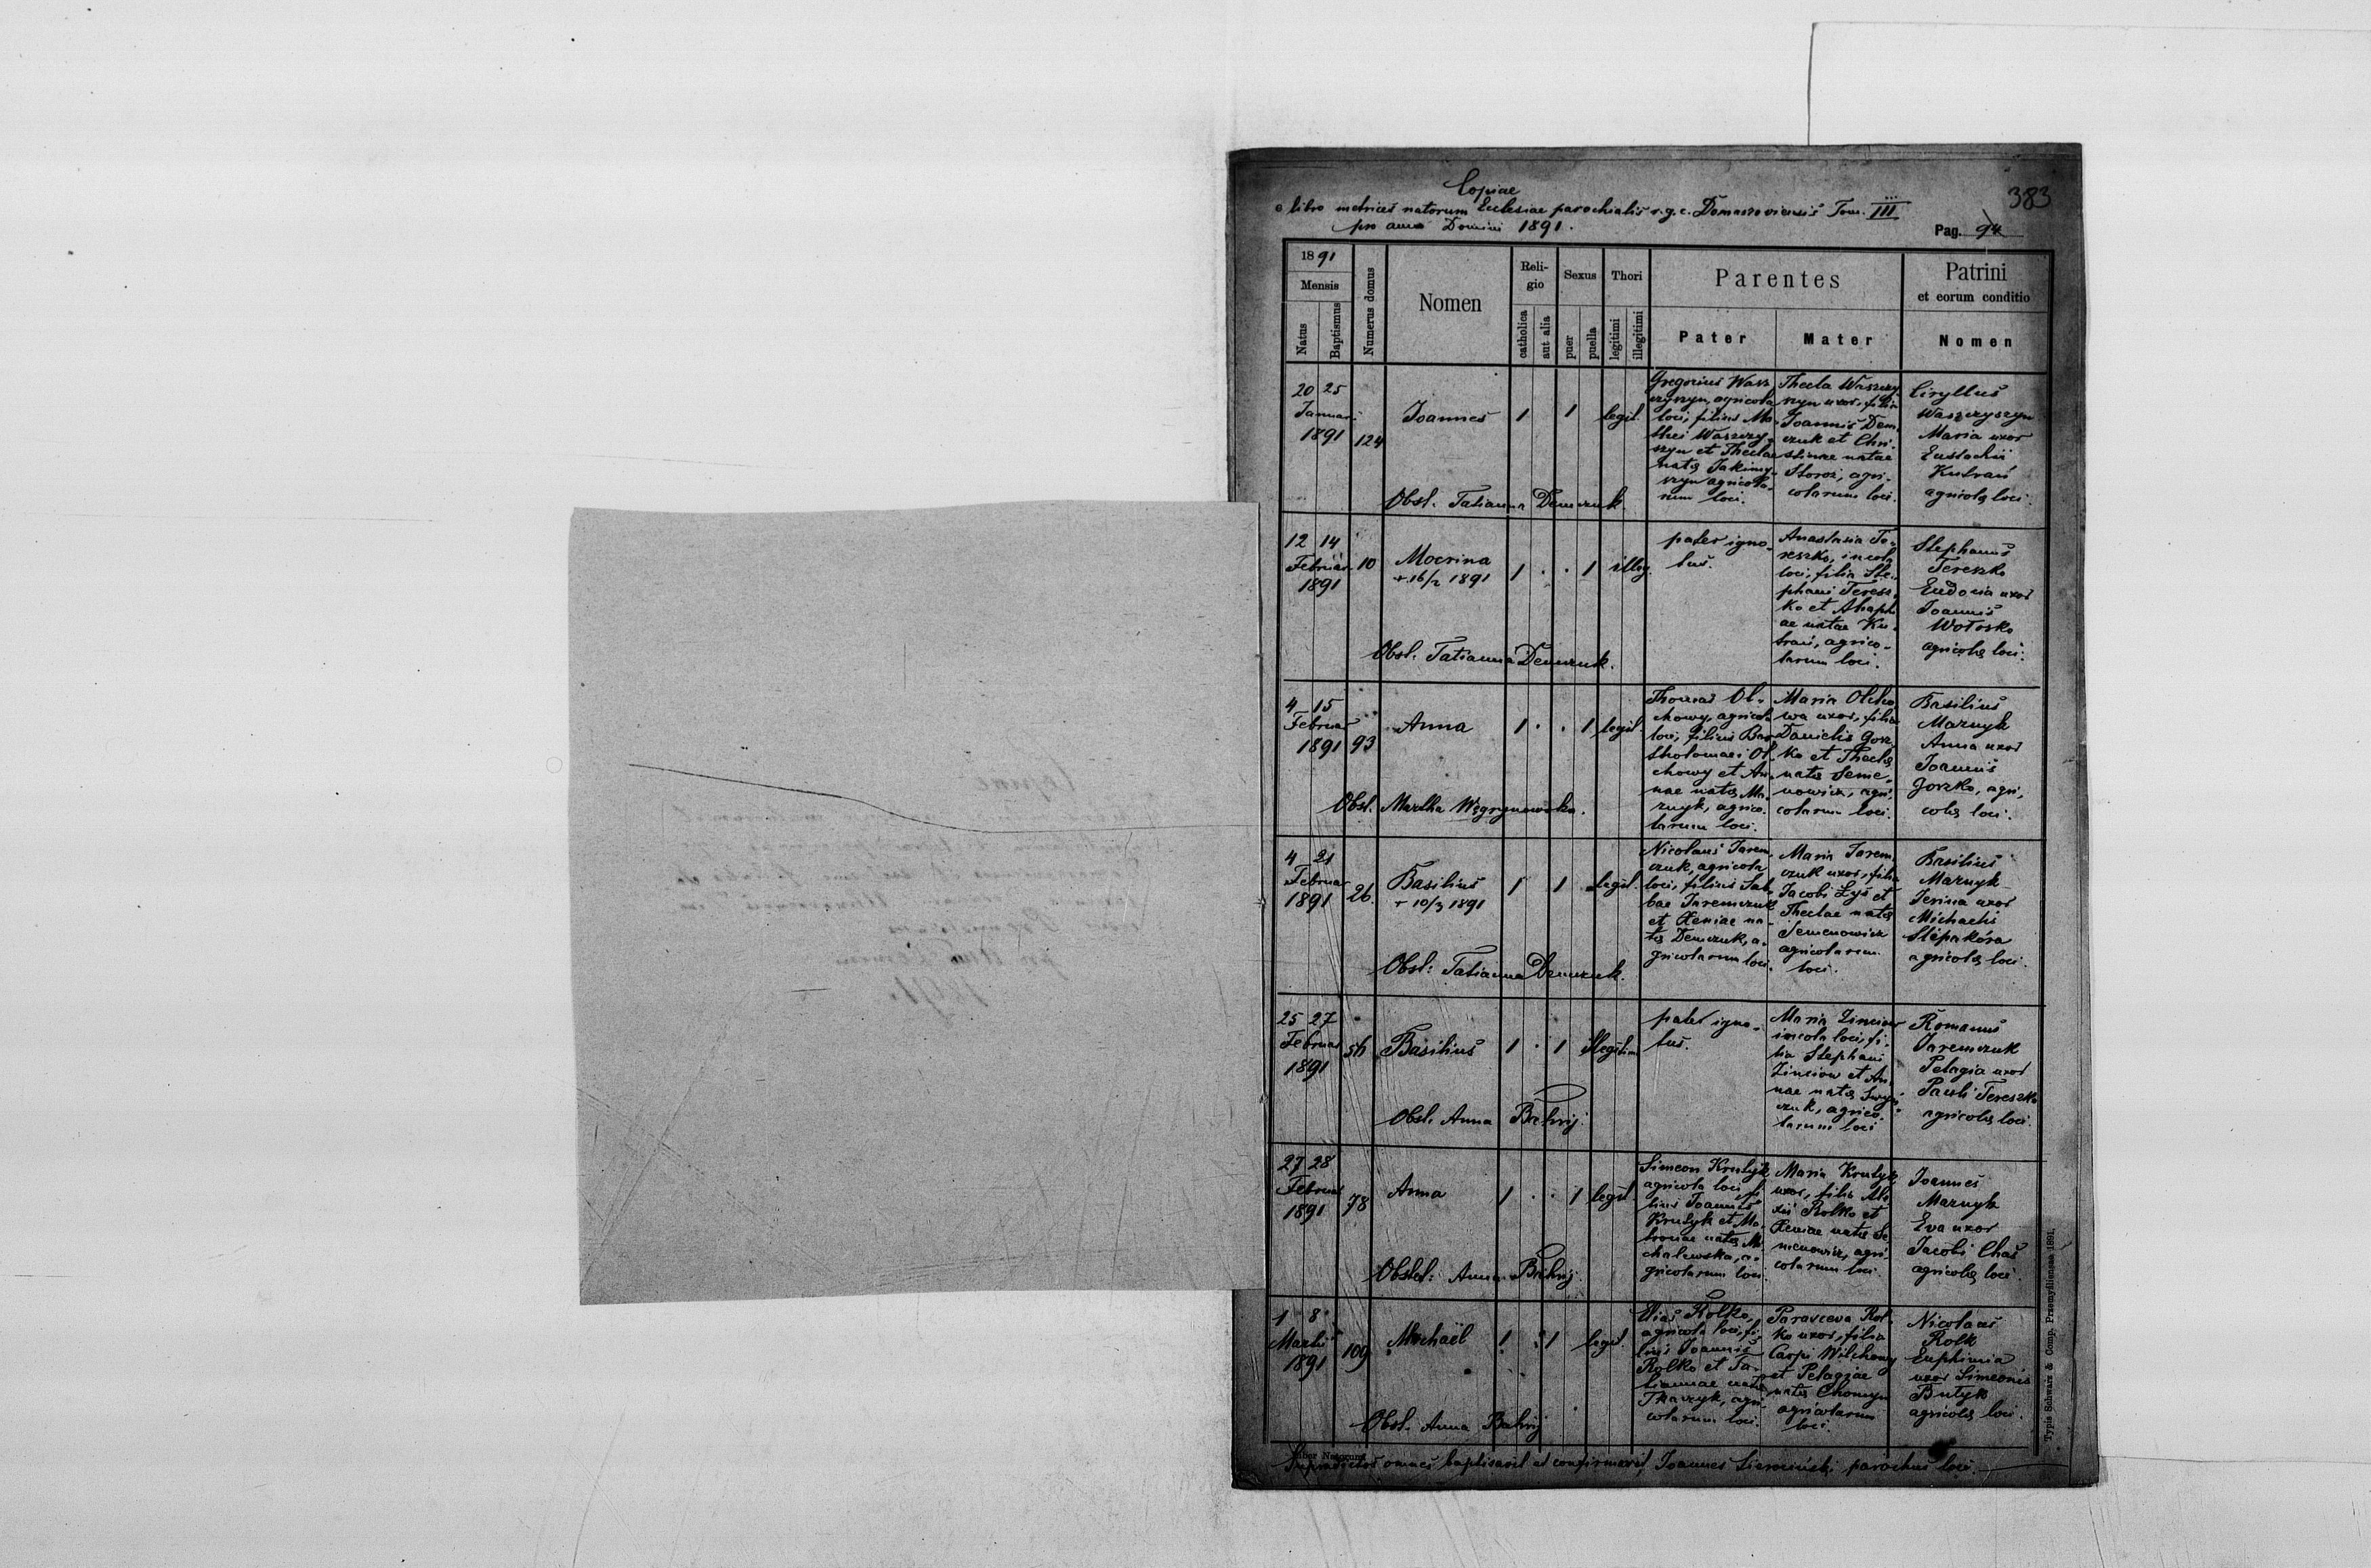 383
Copiae
e libro metrices natorum Ecclesiae parochialis r.g.c. Domaszoviensis Tom. III
pro anno Domini 1891.
Pag. 94
1891
Mensis
Natus
Baptismus
Numerus domus
Nomen
Reli-
gio
catholica
aut alia
Sexus
puer
puella
Thori
legitimi
illegitimi
Parentes
Pater
Mater
Patrini
et eorum conditio
Nomen
20 25
Januar
1891
124
Joannes
1 1 legit.
Gregorius Wasz
czyszyn, agricola
loci, filius Ma-
thei Waszczy-
szyn et Theclae
natę Jakimy-
szyn agricola-
rum loci.
Thecla Waszczy
szyn uxor, filia
Joannis Dem
czuk et Chri-
stinae natae
Storoż, agri-
colarum loci.
Ciryllus
Waszczyszyn
Maria uxor
Eustachii
Kutrań
agricolę loci.
Obst. Tatianna Demczuk.
12 14
Februar.
1891
10
Mocrina
+ 16/2 1891
1 . . 1 illeg.
pater igno-
tus.
Anastasia Te-
reszko, incola
loci, filia Ste-
phani Teresz-
ko et Ahaph
ae natae Ku-
trań, agrico-
larum loci.
Stephanus
Tereszko
Eudocia uxor
Joannis
Wołosko
agricolę loci.
Obst. Tatianna Demczuk.
4 15
Februar
1891
93
Anna
1 . . 1 legit.
Thomas Ol-
chowy, agricola
loci, filius Bar
tholomaei Ol-
chowy et An-
nae natę Ma-
znyk, agrico-
larum loci.
Maria Olcho
wa uxor, filia
Danielis Gorz
ko et Theclę
natę Seme-
nowicz, agri-
colarum loci.
Basilius
Maznyk
Anna uxor
Joannis
Gorzko, agri-
colę loci.
Obst. Martha Węgrzynowska.
4 21
Februar
1891
26.
Basilius
+ 10/3 1891
1 1 legit.
Nicolaus Jarem
czuk, agricola
loci, filius Sab-
bae Jaremczuk
et Xeniae na-
tę Demczuk, a-
gricolarum loci.
Maria Jarem
czuk uxor, filia
Jacobi Łyś et
Theclae natę
Semenowicz
agricolarum
loci.
Basilius
Maznyk
Irina uxor
Michaelis
Slipakóra
agricolę loci.
Obst: Tatianna Demczuk.
25 27
Februar
1891
56
Basilius
1 . 1 illegitim
pater igno-
tus.
Maria Zinciow
incola loci, fi-
lia Stephani
Zinciow et An-
nae natę
czuk, agrico-
larum loci
Romanus
Jaremczuk
Pelagia uxor
Pauli Tereszko
agricolę loci.
Obst. Anna Bahrij.
27 28
Februar
1891
78
Anna
1 . . 1 legit.
Simeon Krutyk
agricola loci, fi-
lius Joannis
Krutyk et Ma-
tronae natę Mi
chalewska, a-
gricolarum loci.
Maria Krutyk
uxor, filia Ale
xii Rolko et
Xeniae natę Se
menowicz, agri
colarum loci.
Joannes
Maznyk
Eva uxor
Jacobi Chaś
agricolę loci.
Obstet: Anna Bahrij.
1 8
Martii
1891
109
Michaël
1 . 1 legit.
Elias Rolko,
agricola loci, fi-
lius Joannis
Rolko et Ta-
tiannae natę
Tkaczyk, agri-
colarum loci.
Paraxceva Rol-
ko uxor, filia
Carpi Wilchowy
et Pelagiae
natę Chomyn
agricolarum
loci.
Nicolaus
Rolk
Euphimia
uxor Simeonis
Butyk
agricolę loci.
Obst. Anna Bahrij
Liber Natorum
Supradictos omnes baptisavit et confirmavit, Joannes parochus loci.
Typis Schwarz & Comp. Przemyśliensis 1891.